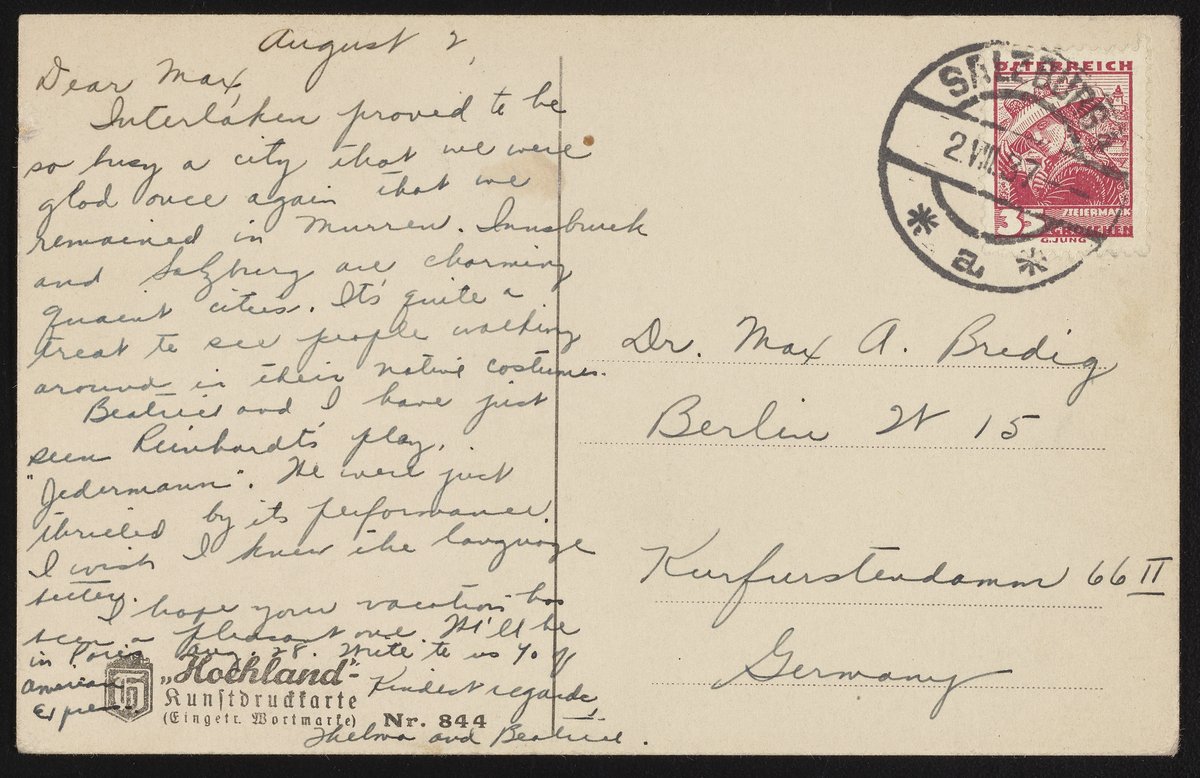 August 2,
Dear Max,
Interlaken proved to be
so busy a city that we were
glad once again that we
remained in Murren. Innsbruck
and Salzburg are charming
quaint cities. It's quite a
treat to see people walking
around in their native costumes.
Beatrice and I have just
seen Reinhardt's play,
"Jedermann". We were just
thrilled by its performance.
I wish I knew the language
better.
I hope your vacation has
been a pleasant one. We'll be
in Paris Aug. 28. Write to us %
American
Express
Kindest regards,
Thelma and Beatrice.
„Hochland"-
Kunstdruckkarte
(Eingetr. Wortmarke) Nr. 844
SALZBURG 2
2.VIII.37
a
ÖSTERREICH
STEIERMARK
35 GROSCHEN
G.JUNG
Dr. Max A. Bredig
Berlin W 15
Kurfurstendamm 66 II
Germany